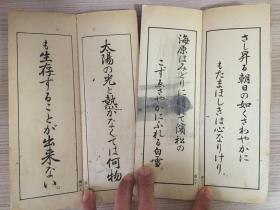 さし昇る朝日の如くさわやかに
もたまほしきは心なりけり
海原はみどりに
て濱松の
こずゑさやかにふれる白雪
太陽の光と熱がなくては何物
も生存することが出来ない。